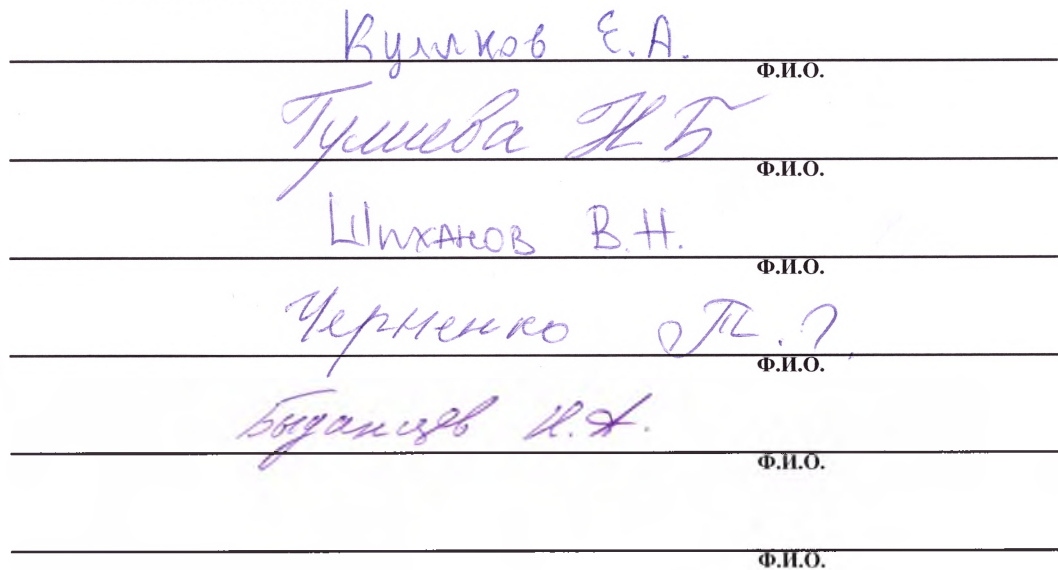 Куликов Е.А.
Ф.И.О.
Гулиева Н Б
Ф.И.О.
Шиханов В.Н.
Ф.И.О.
Черненко Т.Г.
Ф.И.О.
Быданцев И.А.
Ф.И.О.
Ф.И.О.